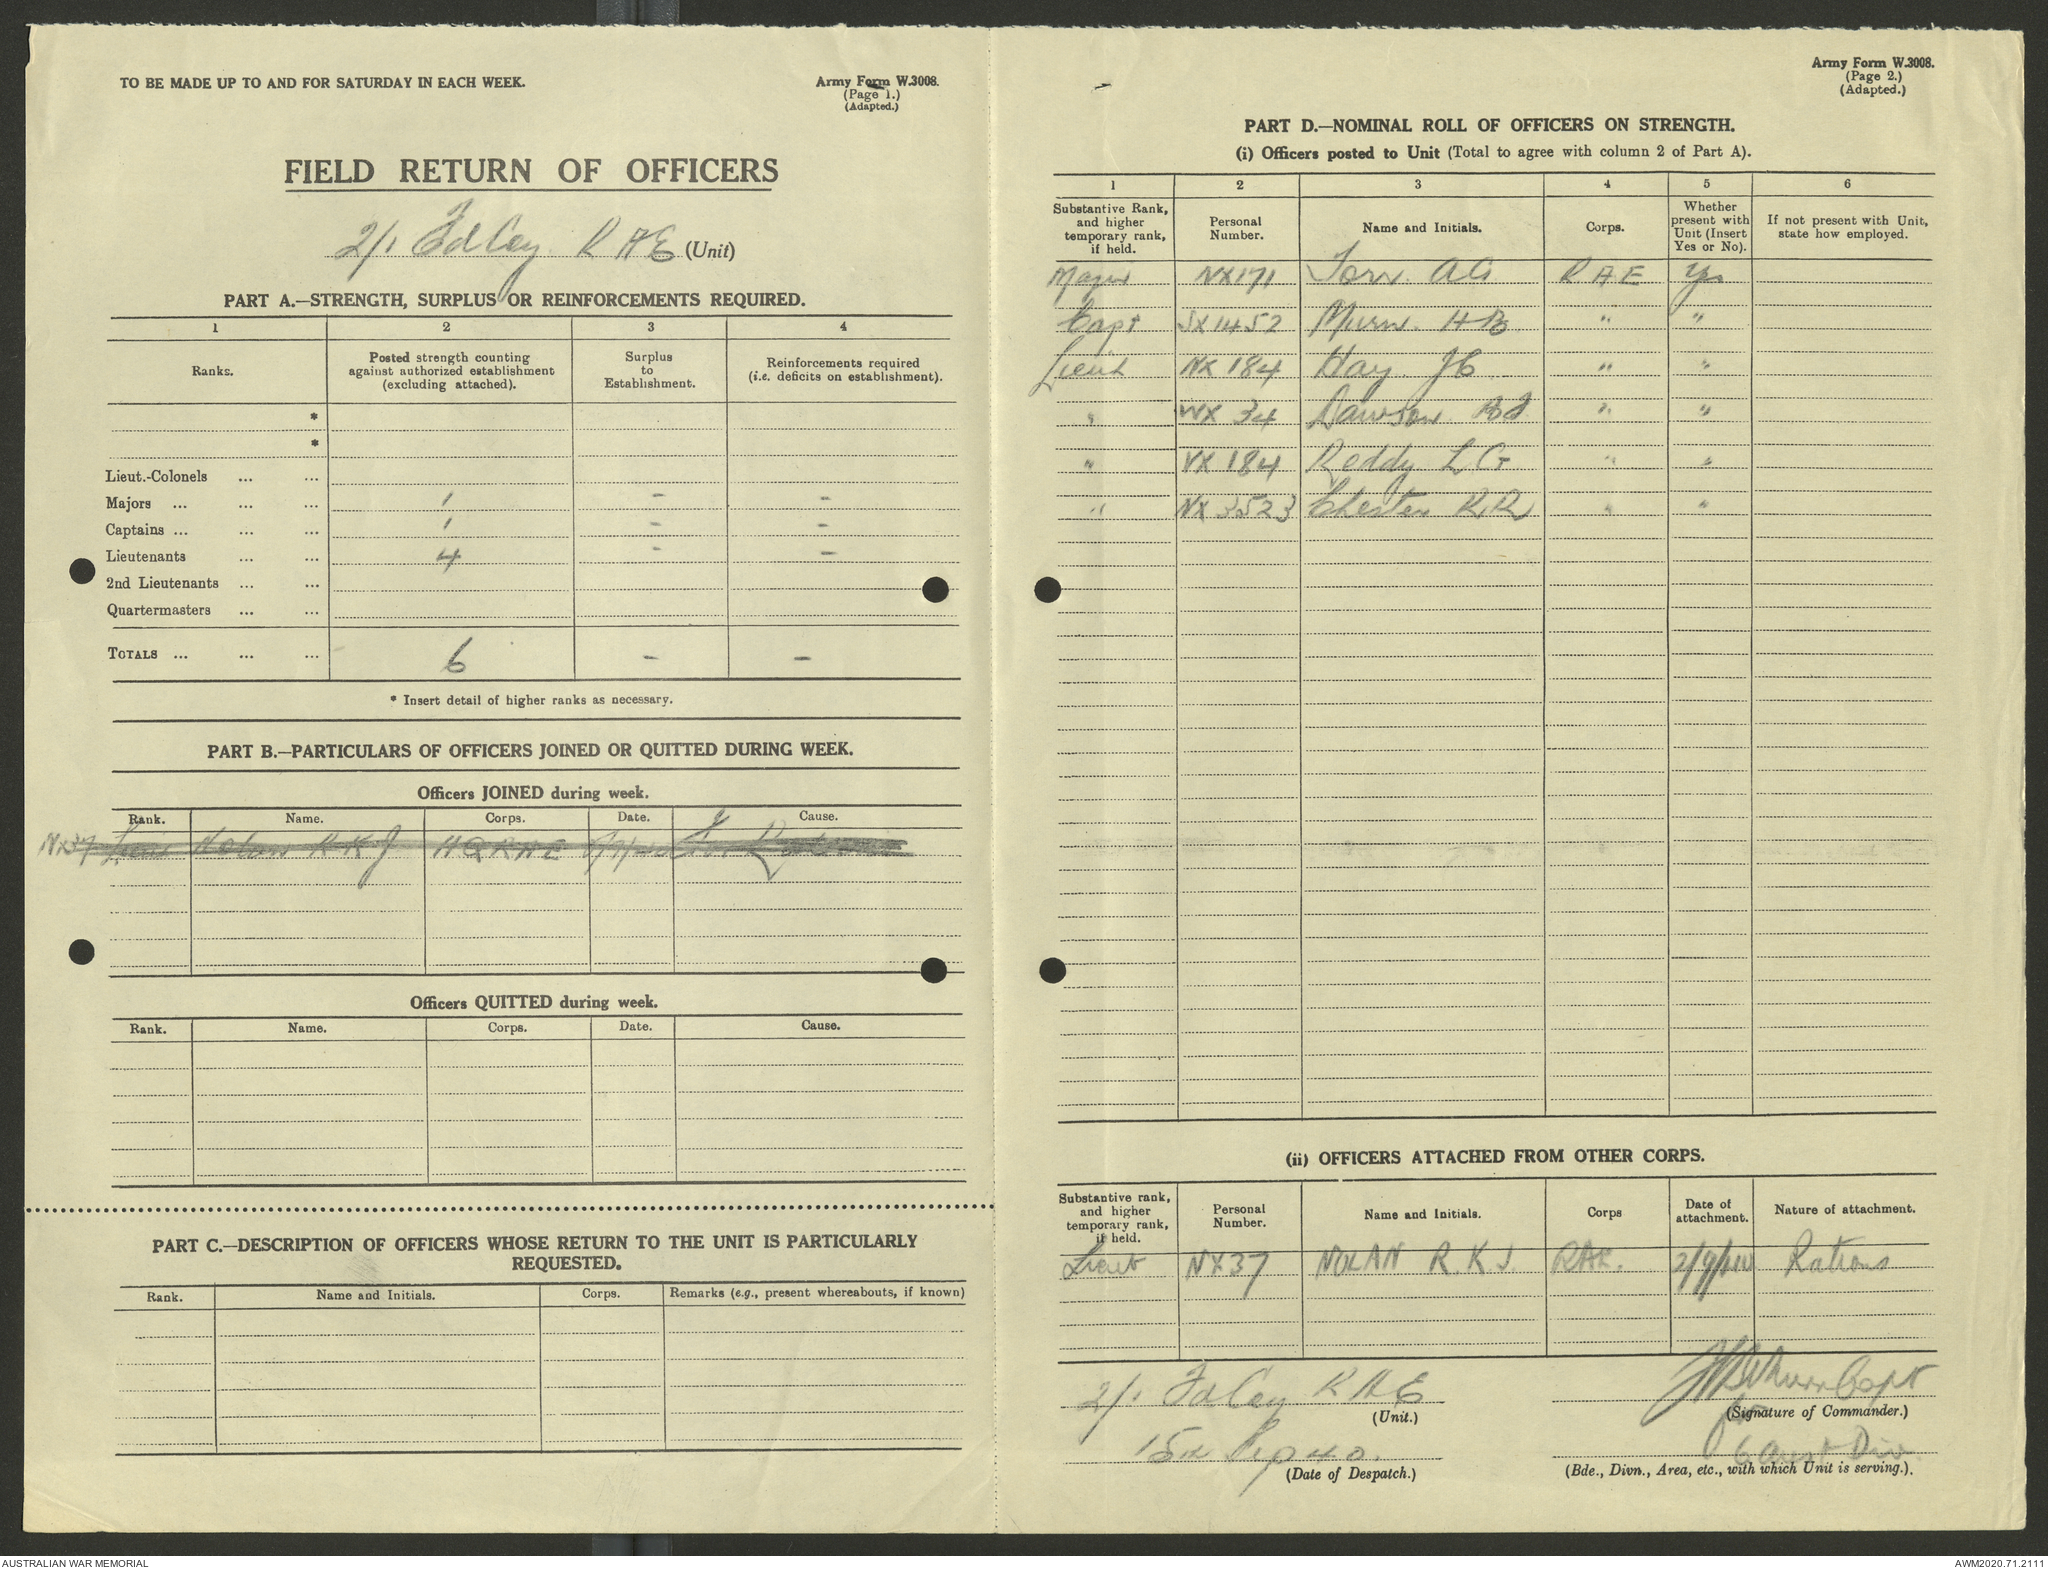 TO BE MADE UP TO AND FOR SATURDAY IN EACH WEEK.
Army Form W.3008.
(Page 1.)
(Adapted.)
FIELD RETURN OF OFFICERS
2/1 Fd Coy R A E (Unit)
PART A.—STRENGTH, SURPLUS OR REINFORCEMENTS REQUIRED.
1 2 3 4
Ranks. Posted strength counting against authorized establishment (excluding attached). Surplus to Establishment. Reinforcements required (i.e. deficits on establishment).
*
*
Lieut.-Colonels ... ...
Majors ... ... ... 1 - -
Captains ... ... ... 1 - -
Lieutenants ... ... 4 - -
2nd Lieutenants ... ...
Quartermasters ... ...
TOTALS ... ... ... 6 - -
* Insert detail of higher ranks as necessary.
PART B.—PARTICULARS OF OFFICERS JOINED OR QUITTED DURING WEEK.
Officers JOINED during week.
Rank. Name. Corps. Date. Cause.
NX37 Lieut Nolan R K J HQ RAE
Officers QUITTED during week.
Rank. Name. Corps. Date. Cause.
PART C.—DESCRIPTION OF OFFICERS WHOSE RETURN TO THE UNIT IS PARTICULARLY
REQUESTED.
Rank. Name and Initials. Corps. Remarks (e.g., present whereabouts, if known)
Army Form W.3008.
(Page 2.)
(Adapted.)
PART D.—NOMINAL ROLL OF OFFICERS ON STRENGTH.
(i) Officers posted to Unit (Total to agree with column 2 of Part A).
1 2 3 4 5 6
Substantive Rank, and higher temporary rank, if held. Personal Number. Name and Initials. Corps. Whether present with Unit (Insert Yes or No). If not present with Unit, state how employed.
Major NX171 Torr. A G R A E Yes
Capt SX1452 Murn. H B " "
Lieut NX 184 Hay J C " "
" WX 34 Dawson " "
" VX 184 Reddy L G " "
" NX 3523 Chester R R " "
(ii) OFFICERS ATTACHED FROM OTHER CORPS.
Substantive rank, and higher temporary rank, if held. Personal Number. Name and Initials. Corps Date of attachment. Nature of attachment.
Lieut NX37 NOLAN R. K. J. RAE. 2/9/40 Rations
2/1 Fd Coy R A E
(Unit.)
15th Sep 40.
(Date of Despatch.)
Capt
(Signature of Commander.)
for
6 Aust Div.
(Bde., Divn., Area, etc., with which Unit is serving.).
AUSTRALIAN WAR MEMORIAL
AWM2020.71.2111